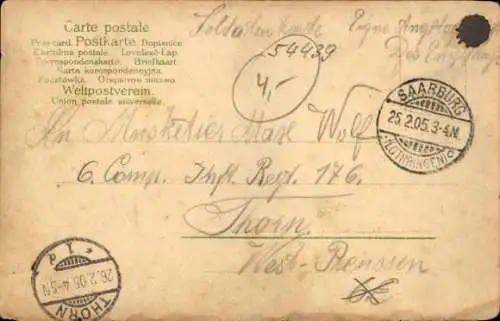 Carte postale
Post-card. Postkarte. Dopisnice
Cartolina postale. Levelező-Lap.
Correspondenskarte. Briefkaart
Karta korespondencyjna.
Pocztówka. Открытое письмо.
Weltpostverein.
Union postale universelle.
Soldatenkarte Eigne Angelegenheit
Des Empfängers
54439
4,-
SAARBURG
25.2.05.3-4N.
(LOTHRINGEN)
An Musketier Max Wolf
6. Comp. Inft. Regt. 176
Thorn
West-Preussen
THORN
26.2.05.4-5N